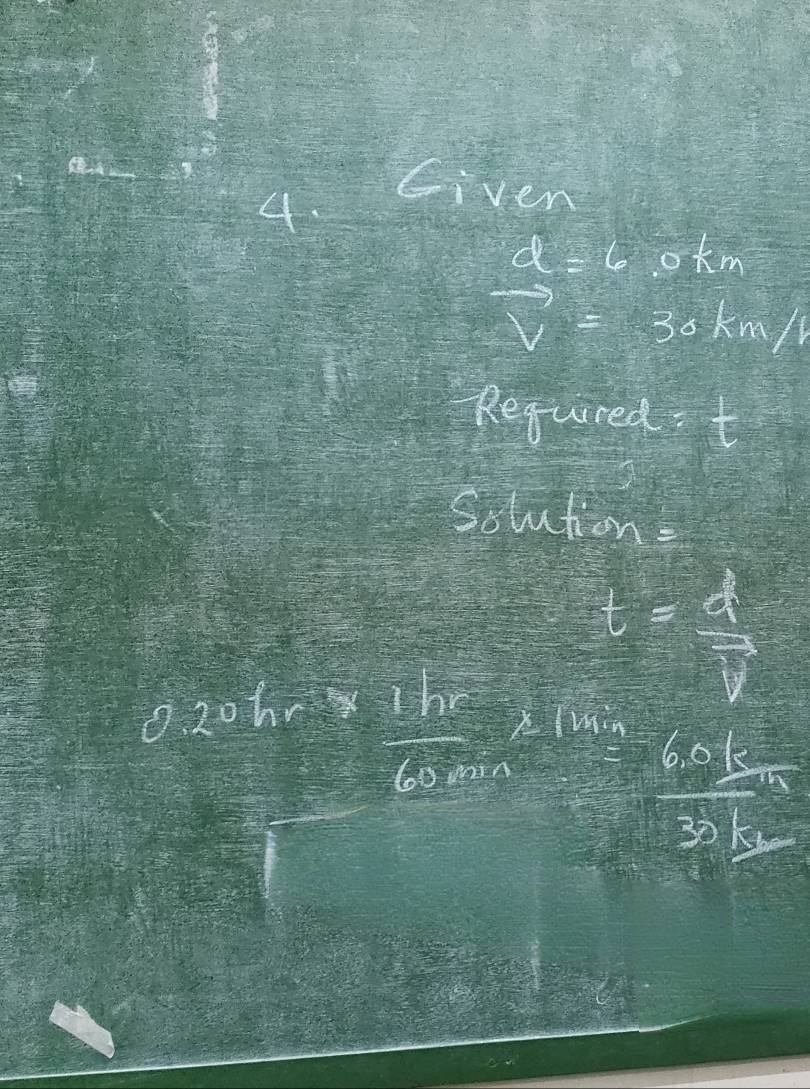 4. Given
d = 6.0 km
V = 30 km/h
Required = t
Solution =
t = d
V
0.20 hr x 1 hr x 1 min = 6.0 km
60 min 30 km